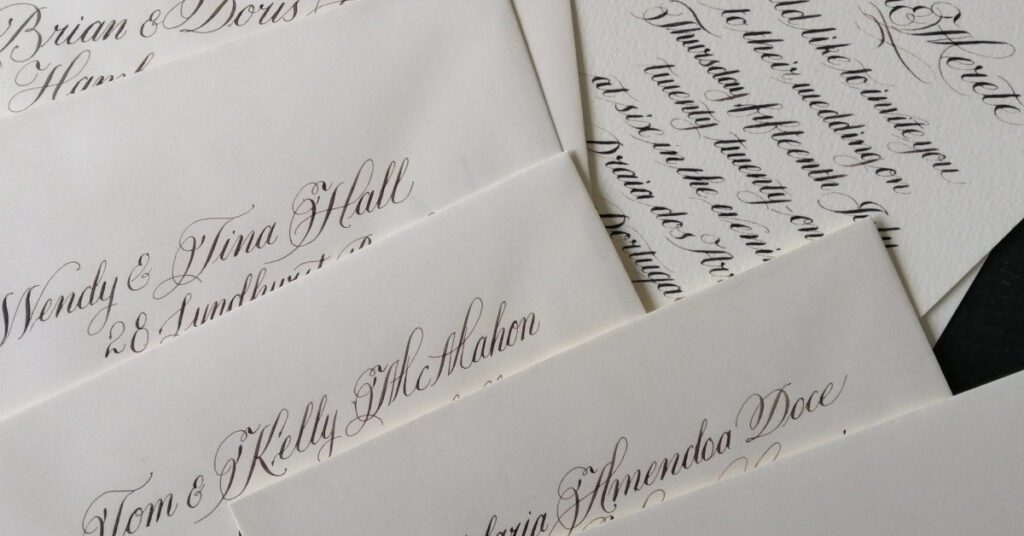 Brian & Doris
Wendy & Tina Hall
28
Tom & Kelly McMahon
Amendoa Doce
& Merete
like to invite you
to their wedding on
Thursday fifteenth July
twenty twenty-on
at six in the
Praia dos